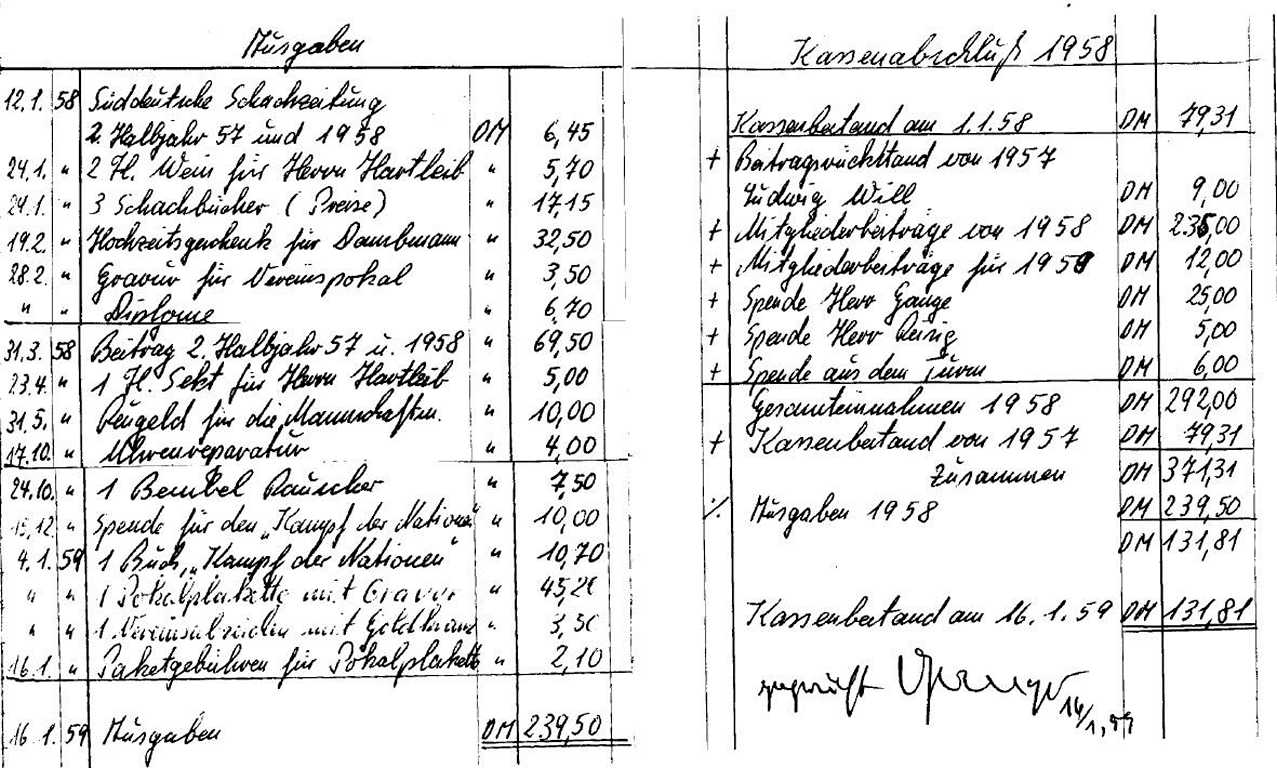 Ausgaben
12.1. 58 Süddeutsche Schachzeitung
2. Halbjahr 57 und 1958 DM 6,45
24.1. " 2 Fl. Wein für Herrn Hartleib " 5,70
24.1. " 3 Schachbücher (Preise) " 17,15
19.2. " Hochzeitsgeschenk für Dambmann " 32,50
28.2. " Gravur für Vereinspokal " 3,50
" " Diplome " 6,70
31.3. 58 Beitrag 2. Halbjahr 57 u. 1958 " 69,50
23.4. " 1 Fl. Sekt für Herrn Hartleib " 5,00
31.5. " Reugeld für die Mannschaften. " 10,00
17.10. " Uhrenreparatur " 4,00
24.10. " 1 Bembel Rauscher " 7,50
" Spende für den „Kampf der Nationen" " 10,00
4.1. 59 1 Buch „Kampf der Nationen" " 10,70
" " 1 Pokalplakette mit Gravur " 45,20
" " 1 Vereinsabzeichen mit Goldkranz " 3,50
16.1. " Paketgebühren für Pokalplakette " 2,10
16.1. 59 Ausgaben DM 239,50
Kassenabschluß 1958
Kassenbestand am 1.1.58 DM 79,31
+ Beitragsrückstand von 1957
Ludwig Will DM 9,00
+ Mitgliederbeiträge von 1958 DM 235,00
+ Mitgliederbeiträge für 1959 DM 12,00
+ Spende Herr Gange DM 25,00
+ Spende Herr Reisig DM 5,00
+ Spende aus dem Turm DM 6,00
Gesamteinnahmen 1958 DM 292,00
+ Kassenbestand von 1957 DM 79,31
Zusammen DM 371,31
./. Ausgaben 1958 DM 239,50
DM 131,81
Kassenbestand am 16.1.59 DM 131,81
geprüft